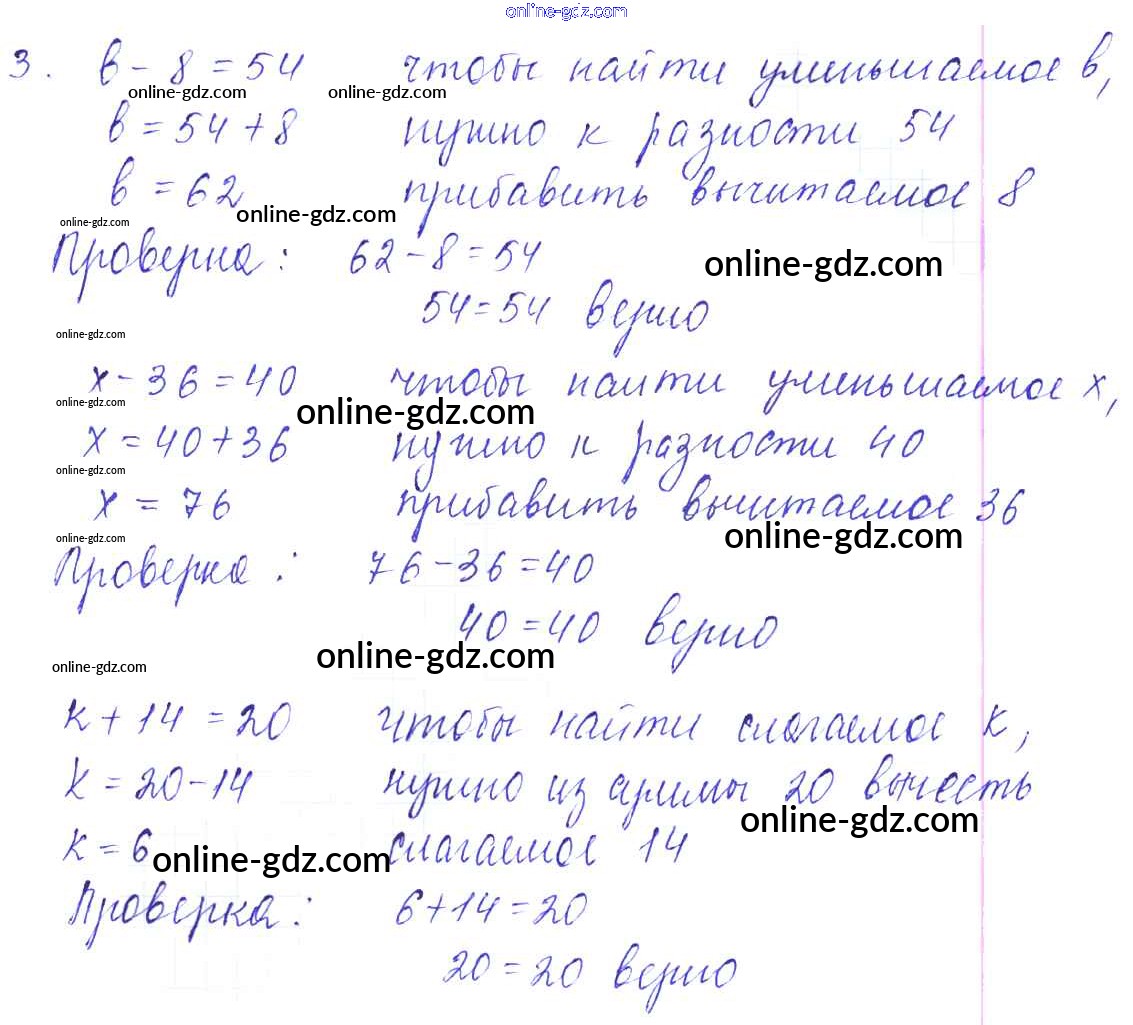 online-gdz.com
3. в - 8 = 54 чтобы найти уменьшаемое в,
online-gdz.com online-gdz.com
в = 54 + 8 нужно к разности 54
в = 62 прибавить вычитаемое 8
online-gdz.com online-gdz.com
Проверка: 62 - 8 = 54
online-gdz.com
54 = 54 верно
online-gdz.com
х - 36 = 40 чтобы найти уменьшаемое х,
online-gdz.com online-gdz.com
х = 40 + 36 нужно к разности 40
online-gdz.com
х = 76 прибавить вычитаемое 36
online-gdz.com online-gdz.com
Проверка: 76 - 36 = 40
40 = 40 верно
online-gdz.com online-gdz.com
к + 14 = 20 чтобы найти слагаемое к,
к = 20 - 14 нужно из суммы 20 вычесть
online-gdz.com
к = 6 слагаемое 14
online-gdz.com
Проверка: 6 + 14 = 20
20 = 20 верно